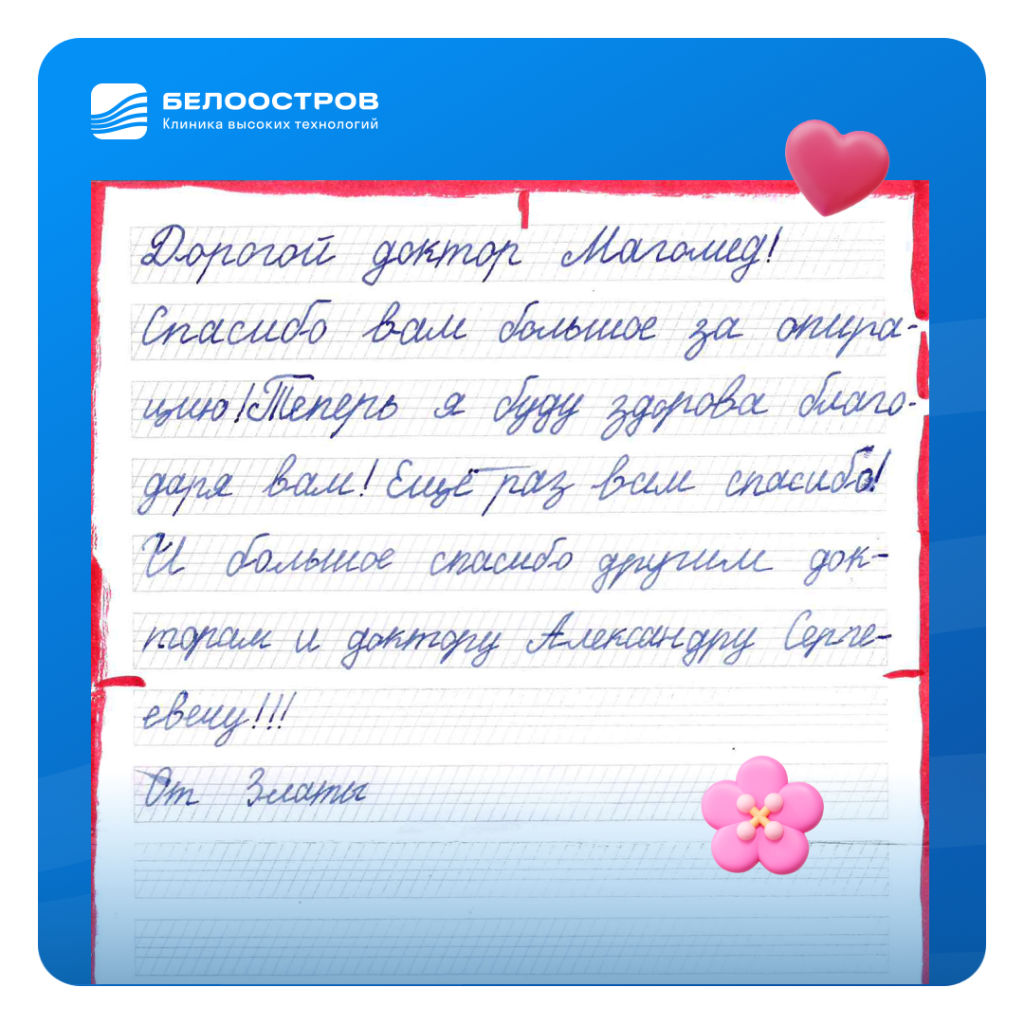 БЕЛООСТРОВ
Клиника высоких технологий
Дорогой доктор Магомед!
Спасибо вам большое за опира-
цию! Теперь я буду здорова благо-
даря вам! Ещё раз вам спасибо!
И большое спасибо другим док-
торам и доктору Александру Серге-
евечу!!!
От Златы